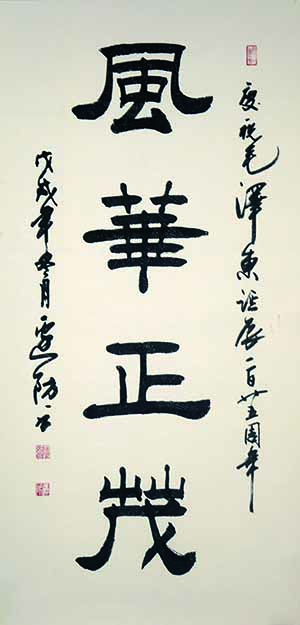 慶祝毛澤東誕辰一百廿五周年
風華正茂
戊戌年冬月